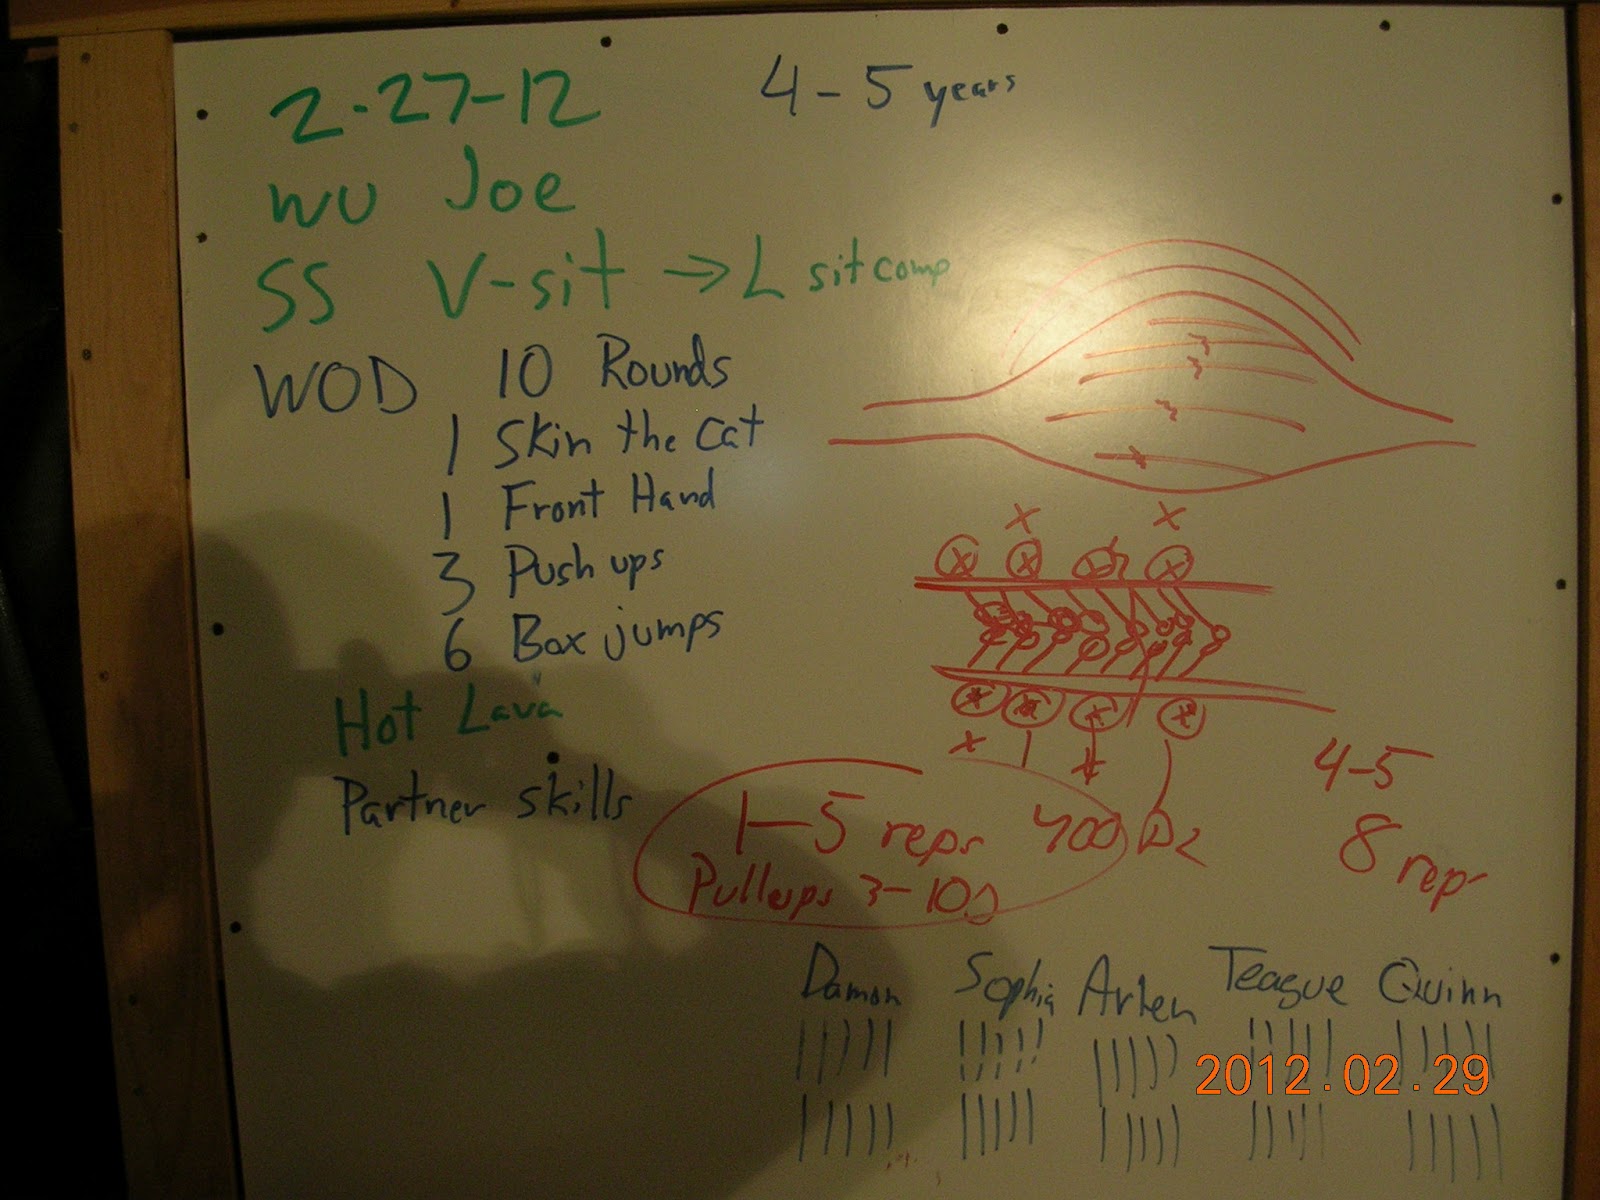 2-27-12
4-5 years
WU Joe
SS V-sit → L sit comp
WOD 10 Rounds
1 Skin the Cat
1 Front Hand
3 Push ups
6 Box jumps
Hot Lava
Partner skills
1-5 reps 400
Pullups 3-10s
4-5
8 reps
Damon Sophia Arhen Teague Quinn
2012.02.29